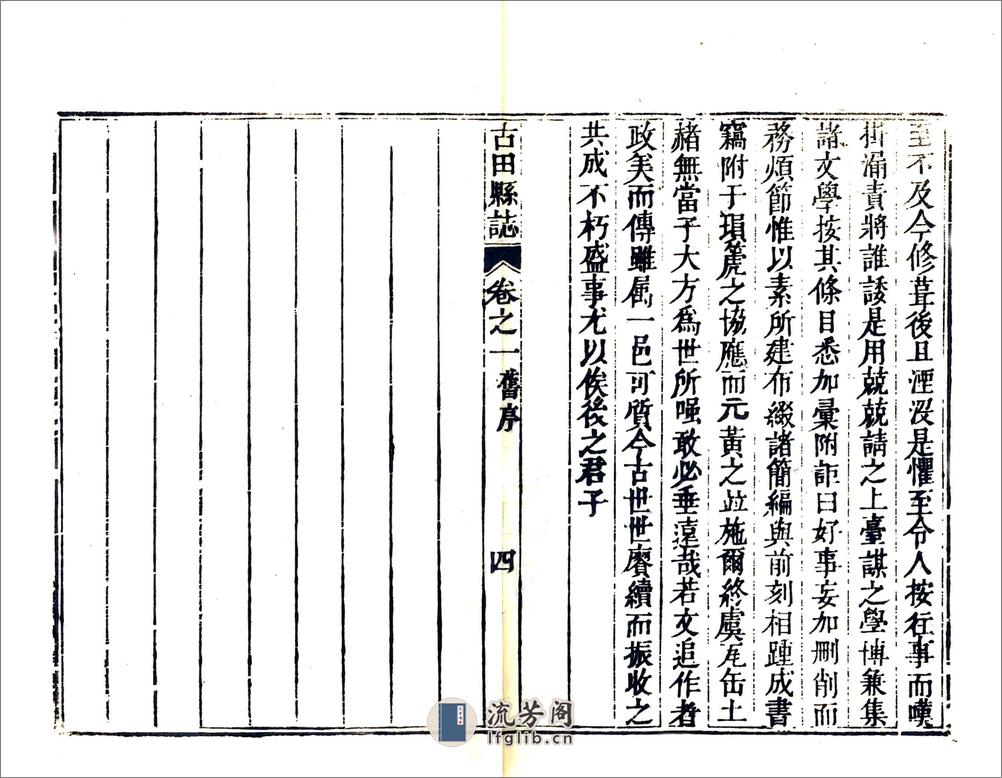 至不及今修葺後且湮沒是懼至令人按行事而嘆
掛漏責將誰諉是用兢兢請之上臺謀之學博兼集
諸文學按其條目悉加彙附詎曰好事妄加刪削而
務煩節惟以素所建布綴諸簡編與前刻相踵成書
竊附于塤箎之協應而元黃之並施爾終虞瓦缶土
赭無當于大方為世所嗤敢必垂遠哉若文追作者
政美而傳雖属一邑可質今古世世賡續而振收之
共成不朽盛事尤以俟後之君子
古田縣誌 卷之一 舊序 四
流芳阁
lfglib.cn